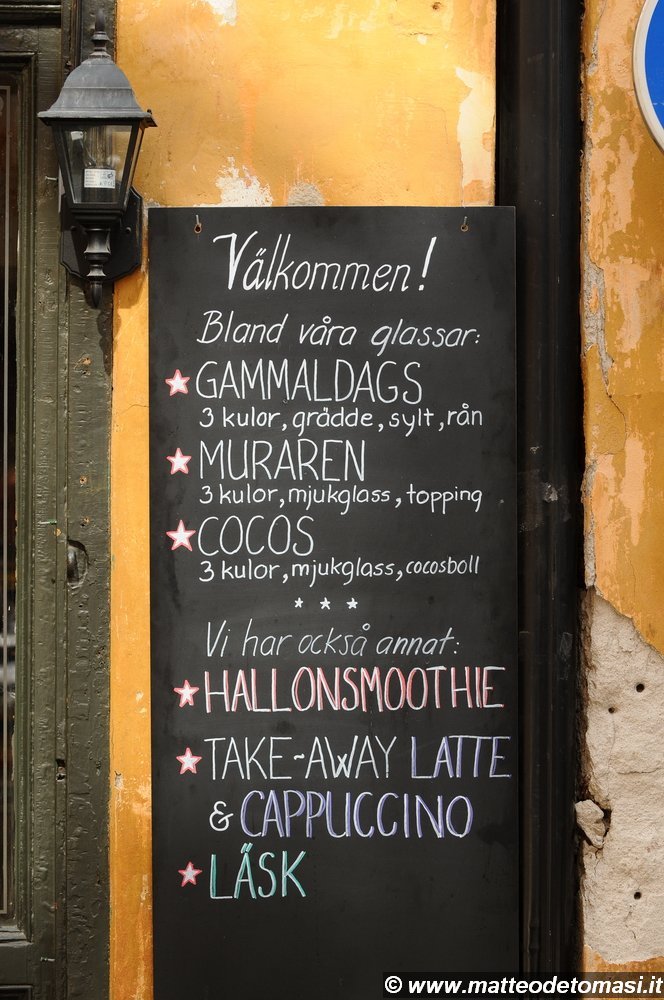 Välkommen!
Bland våra glassar:
GAMMALDAGS
3 kulor, grädde, sylt, rån
MURAREN
3 kulor, mjukglass, topping
COCOS
3 kulor, mjukglass, cocosboll
Vi har också annat:
HALLONSMOOTHIE
TAKE-AWAY LATTE
& CAPPUCCINO
LÄSK
© www.matteodetomasi.it